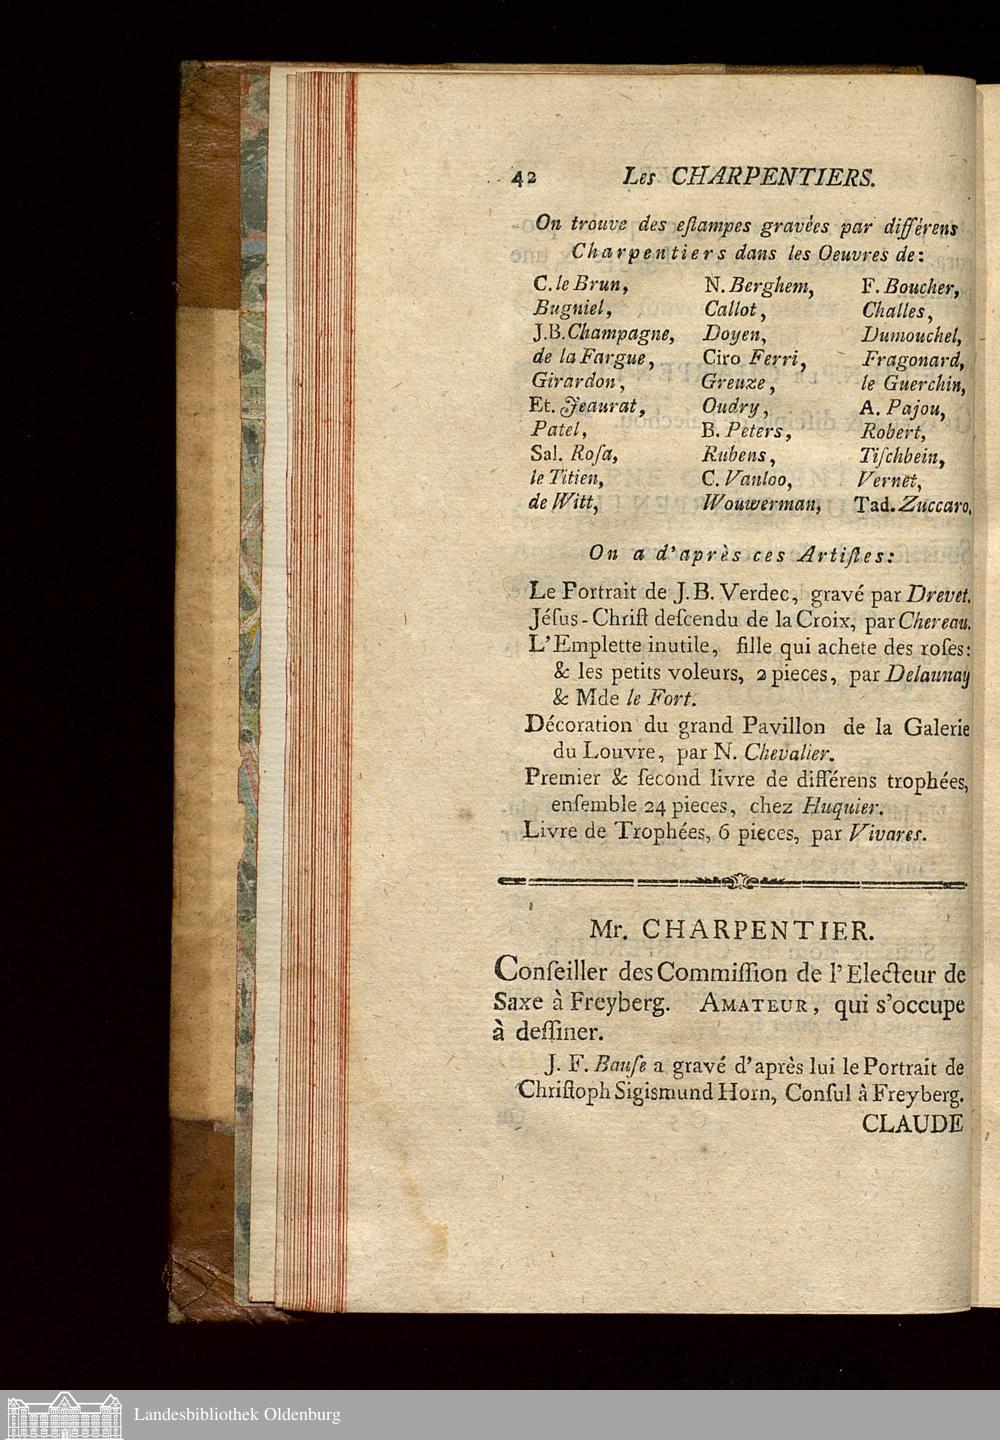 42 Les CHARPENTIERS.
On trouve des eſtampes gravées par différens
Charpentiers dans les Oeuvres de:
C. le Brun, N. Berghem, F. Boucher,
Bugniel, Callot, Challes,
J.B. Champagne, Doyen, Dumouchel,
de la Fargue, Ciro Ferri, Fragonard,
Girardon, Greuze, le Guerchin,
Et. Jeaurat, Oudry, A. Pajou,
Patel, B. Peters, Robert,
Sal. Roſa, Rubens, Tiſchbein,
le Titien, C. Vanloo, Vernet,
de Witt, Wouwerman, Tad. Zuccaro.
On a d'après ces Artiſtes:
Le Portrait de J. B. Verdec, gravé par Drevet.
Jéſus-Chriſt deſcendu de la Croix, par Chereau.
L'Emplette inutile, fille qui achete des roſes:
& les petits voleurs, 2 pieces, par Delaunay
& Mde le Fort.
Décoration du grand Pavillon de la Galerie
du Louvre, par N. Chevalier.
Premier & ſecond livre de différens trophées,
enſemble 24 pieces, chez Huquier.
Livre de Trophées, 6 pieces, par Vivares.
Mr. CHARPENTIER.
Conſeiller des Commiſſion de l'Electeur de
Saxe à Freyberg. AMATEUR, qui s'occupe
à deſſiner.
J. F. Bauſe a gravé d'après lui le Portrait de
Chriſtoph Sigismund Horn, Conſul à Freyberg.
CLAUDE
Landesbibliothek Oldenburg